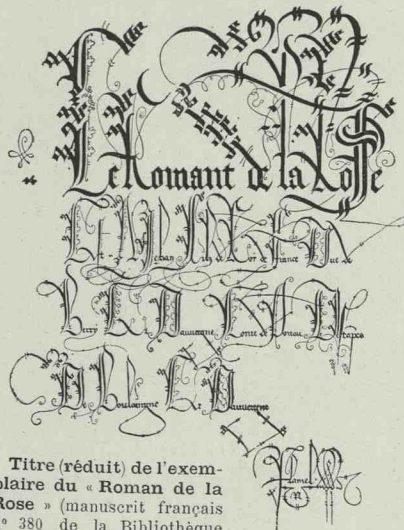 Le Romant de la Rose
Et Jehan filz de Roy de France Duc de
Berry Et Dauvergne Conte de Poitou Destapes
De Bouloingne Et Dauvergne
Flamel
Titre (réduit) de l'exem-
plaire du « Roman de la
Rose » (manuscrit français
n° 380 de la Bibliothèque